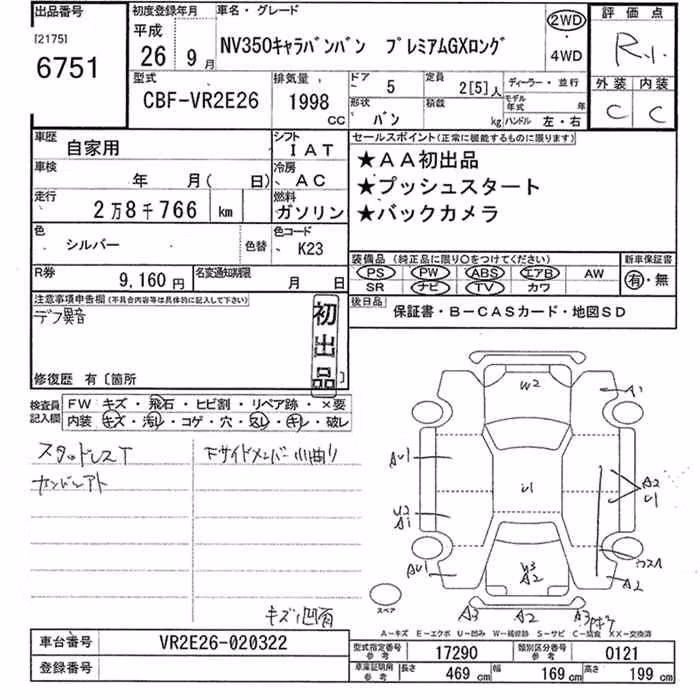 出品番号
[2175]
6751
初度登録年月
平成
26年 9月
車名・グレード
NV350キャラバンバン プレミアムGXロング
2WD
・
4WD
評価点
R.1.
外装 内装
C C
型式
CBF-VR2E26
排気量
1998 CC
ドア 5
形状 バン
定員 2[5]人
積載 kg
ディーラー・並行
モデル年式 年
ハンドル 左・右
車歴 自家用
シフト IAT
車検 年 月( 日)
冷房 AC
走行 2万8千766 km
燃料 ガソリン
色 シルバー 色替
色コード K23
R券 9,160円
名変通知期限 月 日
セールスポイント(正常に機能するものに限ります)
★AA初出品
★プッシュスタート
★バックカメラ
装備品(純正品に限り○をつけてください)
新車保証書
PS PW ABS エアB AW
SR ナビ TV カワ
有・無
後日品 保証書・B-CASカード・地図SD
注意事項申告欄(不具合内容等は具体的に記入して下さい)
デフ異音
初出品
修復歴 有〔箇所 〕
検査員記入欄
FW キズ・飛石・ヒビ割・リペア跡・×要
内装 キズ・汚レ・コゲ・穴・スレ・キレ・破レ
スタッドレスT
Fサイドメンバー小曲り
キズ凹有
W2
A1
AU1
U1
A2
U1
U2
A1
AU1
U3
A2
カスハ
A2
スペア
A3
A2
A3
A-キズ E-エクボ U-凹み W-補修跡 S-サビ C-腐食 XX-交換済
車台番号 VR2E26-020322
登録番号
型式指定番号 参考 17290
類別区分番号 参考 0121
車庫証明用 参考 長さ 469 cm 幅 169 cm 高さ 199 cm